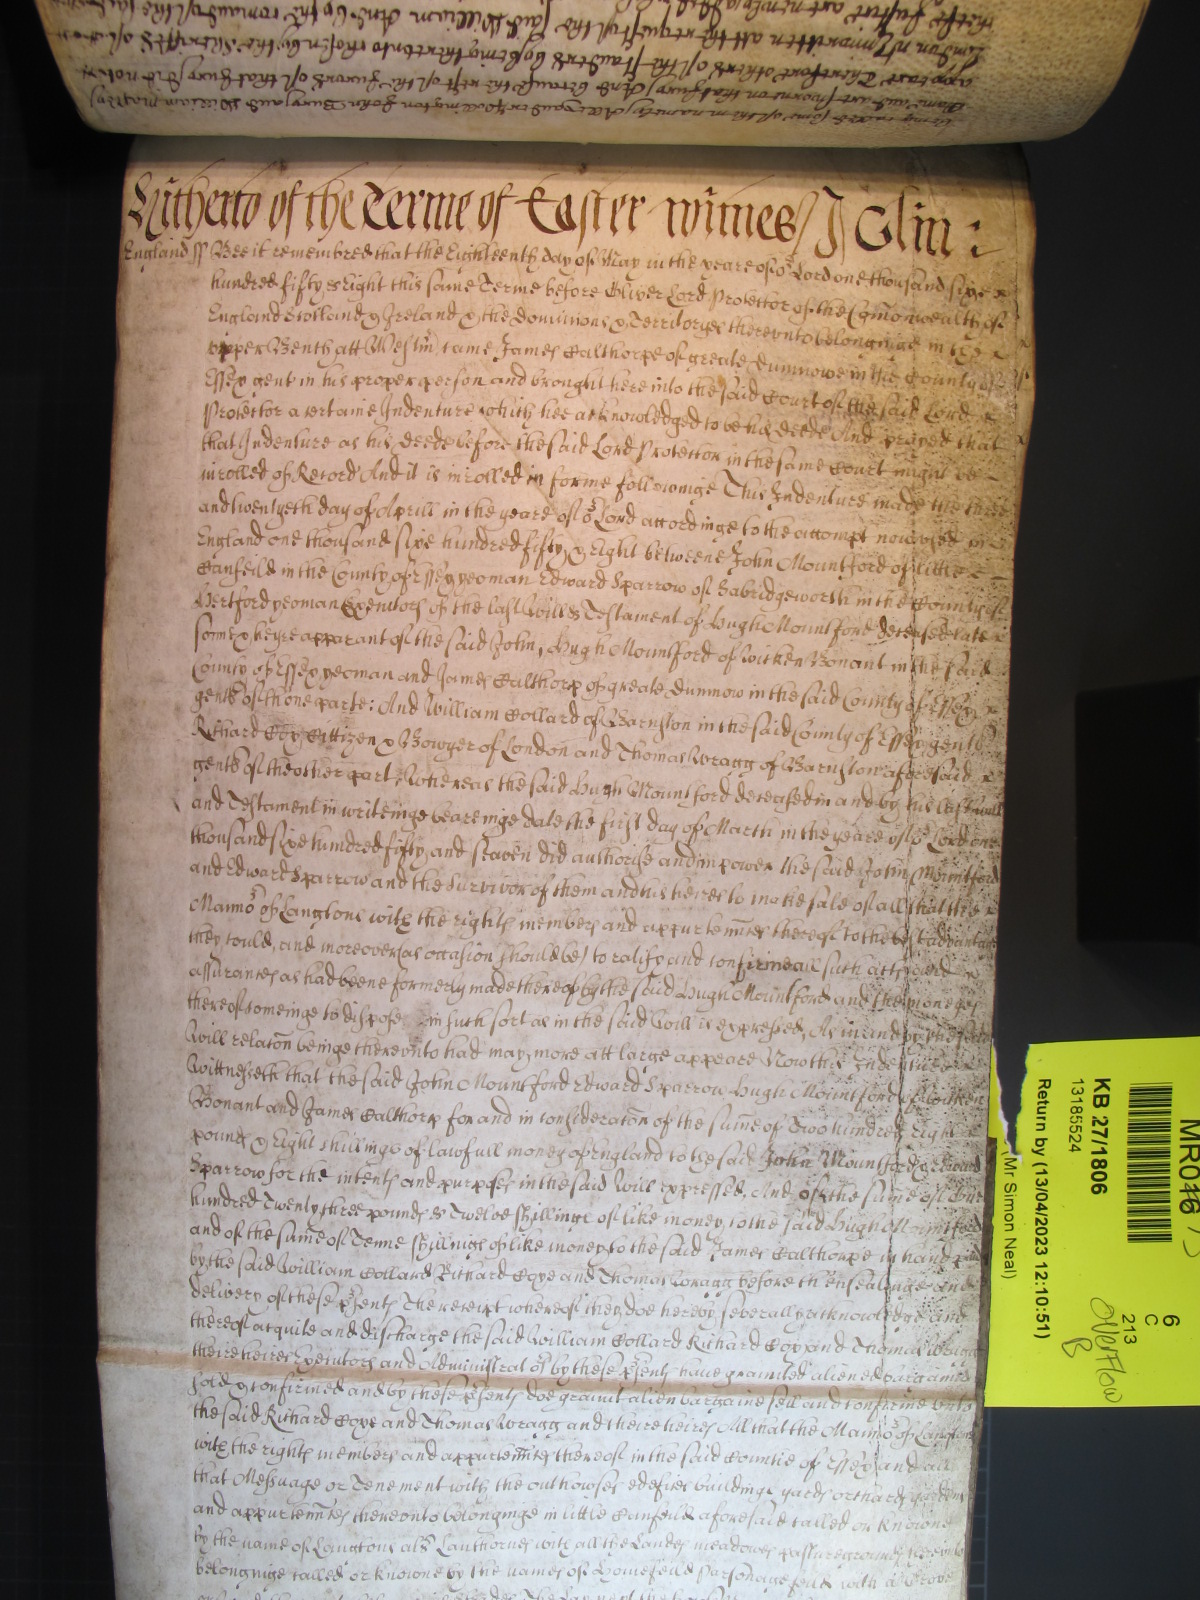 Hitherto of the Terme of Easter witnes / J Glin :
England ss Bee it remembred that the Eighteenth day of May in the yeare of or Lord one thousand sixe
hundred fifty & Eight this same Terme before Oliver Lord Protector of the Comonwealth of
England Scotland & Ireland & the Dominions & Territoryes therevnto belonginge in the
vpper Bench att Westm came James Calthorpe of greate Dunmowe in the County of
Essex gent in his proper person and brought here into the said Court of the said Lord
Protector a certaine Indenture which hee acknowledged to be his deede And prayed that
that Indenture as his deede before the said Lord Protector in the same Court might be
inrolled of Record And it is inrolled in forme followinge This Indenture made the three
and twentyeth day of Aprill in the yeare of or Lord accordinge to the accompt now vsed in
England one thousand sixe hundred fifty & Eight betweene John Mountford of little
Canfeild in the County of Essex yeoman Edward Sparrow of Sabridgeworth in the County of
Hertford yeoman Executors of the last Will & Testament of Hugh Mountford deceased late
sonne & heyre apparant of the said John, Hugh Mountford of Wicken Bonant in the said
County of Essex yeoman and James Calthorp of greate Dunmow in the said County of Essex
gent of th one parte: And William Collard of Barnston in the said County of Essex gent
Richard Coye Cittizen & Bowyer of London and Thomas Wragg of Barnston aforesaid
gent of the other part, Whereas the said Hugh Mountford deceased in and by his last will
and Testament in writeinge beareinge date the first day of March in the yeare of or Lord one
thousand sixe hundred fifty and seaven did authorise and impower the said John Mountford
and Edward Sparrow and the Survivor of them and his heires to make sale of all that the
Mannor of Langtons with the rights members and appurtennces thereof to the best advantage
they could, and moreover (as occasion should be) to ratify and confirme all such acts and
assurances as had beene formerly made thereof by the said Hugh Mountford and the moneyes
thereof comeinge to dispose in such sort as in the said Will is expressed, As in and by the said
Will relacon beinge therevnto had may more att large appeare Now this Indenture
Wittnesseth that the said John Mountford Edward Sparrow Hugh Mountford of Wicken
Bonant and James Calthorp for and in consideracon of the sume of Two hundred Eight
pounds & Eight shillings of lawfull money of England to the said John Mountford & Edward
Sparrow for the intents and purposes in the said Will expressed, And of the sume of four
hundred Twenty three pounds & Twelve shillings of like money to the said Hugh Mountford
and of the sume of Tenne shillings of like money to the said James Calthorpe in hand paid
by the said William Collard Richard Coye and Thomas Wragg before th ensealinge and
delivery of these psents The receipt whereof they doe hereby severally acknowledge and
thereof acquite and discharge the said William Collard Richard Coy and Thomas Wragg
theire heires Executors and Administrators by these psents have graunted aliened bargained
sold & confirmed and by these psents doe graunt alien bargaine sell and confirme vnto
the said Richard Coye and Thomas Wragg and theire heires All that the Mannor of Langtons
with the rights members and appurtennces thereof in the said Countie of Essex and all
that Messuage or Tenement with the outhowses edefices buildings yards orchards gardens
and appurtennces therevnto belonginge in little Canfeild aforesaid called or knowne
by the name of Langtons als Lanthornes with all the Landes meadowes pasture grounds therevnto
belonginge called or knowne by the names of Homefeild Parsonage feild with a Grove
MR016
6
C
213
Overflow
B
KB 27/1806
13185524
Return by (13/04/2023 12:10:51)
(Mr Simon Neal)